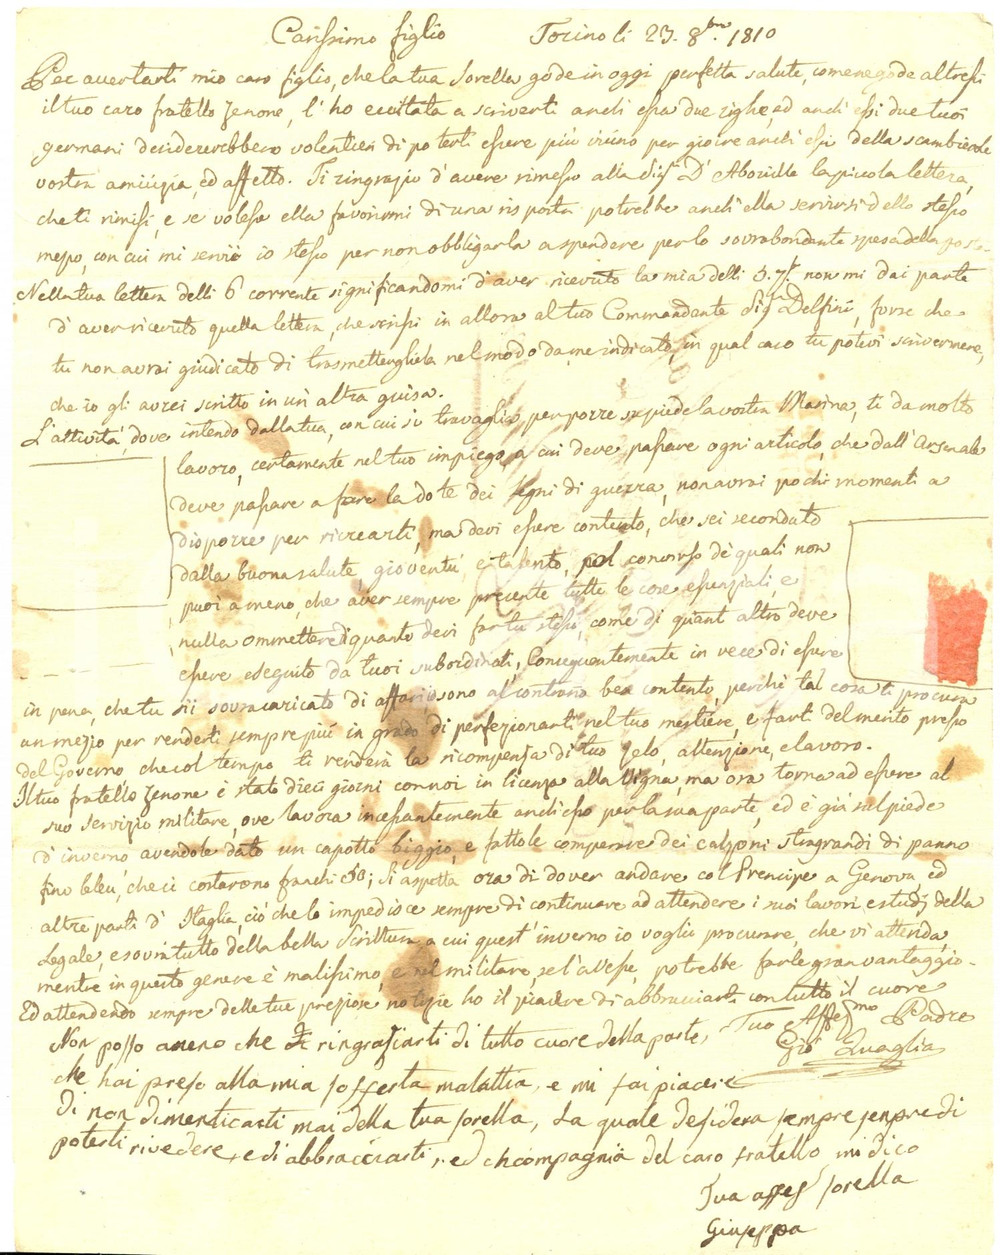 Carissimo figlio Torino li 23. 8bre. 1810
Per avertarti mio caro figlio, che la tua Sorella gode in oggi perfetta salute, come ne gode altresi
il tuo caro fratello Zenone, l'ho eccitata a scriverti anch'essa due righe, ed anch'essi due tuoi
germani desidererebbero volentieri di poterti essere più vicino per gioire anch'essi della scambievole
vostra amicizia, ed affetto. Ti ringrazio d'avere rimesso alla Sigra D'Aboville la piccola lettera,
che ti rimisi, e se volesse ella favorirmi di una risposta potrebbe anch'ella servirsi dello stesso
mezzo, con cui mi servii io stesso per non obbligarla a spendere per lo sovrabondante spesa della posta
Nella tua lettera delli 6 corrente significandomi d'aver ricevuto la mia delli 3. 7bre non mi dai parte
d'aver ricevuto quella lettera, che scrissi in allora al tuo Commandante Sigr Delfini, forse che
tu non avrai giudicato di trasmettergliela nel modo da me indicato, in qual caso tu potevi scrivermene,
che io gli avrei scritto in un altra guisa.
L'attività, dove intendo dalla tua, con cui si travaglia per porre su piede la vostra Marina, ti da molto
lavoro, certamente nel tuo impiego, a cui deve passare ogni articolo, che dall'Arsenale
deve passare a fare la dote dei legni di guerra, non avrai pochi momenti a
disporre per ricrearti, ma devi essere contento, che sei secondato
dalla buona salute, gioventù, e talento, col concorso de quali non
puoi a meno, che aver sempre presente tutte le cose essenziali, e
nulla ommettere di quanto devi far tu stesso, come di quant'altro deve
essere eseguito da tuoi subordinati, Conseguentemente in vece di essere
in pena, che tu sii sovracaricato di affari sono al contrario ben contento, perchè tal cosa ti procura
un mezzo per renderti sempre più in grado di perfezionarti nel tuo mestiere, e farti del merito presso
del Governo, che col tempo ti renderà la ricompensa di tuo zelo, attenzione, e lavoro.
Il tuo fratello Zenone è stato dieci giorni con noi in licenza alla Vigna, ma ora torna ad essere al
suo servizio militare, ove lavora incessantemente anch'esso per la sua parte, ed è già sul piede
d'inverno avendole dato un capotto biggio, e fattole comperare dei calzoni stragrandi di panno
fino bleu, che ci costarono franchi 50; Si aspetta ora di dover andare col Prencipe a Genova, ed
altre parti d'Itaglia, ciò che lo impedisce sempre di continuare ad attendere i suoi lavori e studj della
Legale, e sovra tutto della bella Scrittura, a cui quest'inverno io voglio procurare, che vi attenda,
mentre in questo genere è malissimo, e nel militare, se l'avesse, potrebbe farle gran vantaggio.
Ed attendendo sempre delle tue preziose notizie ho il piacere di abbracciarti con tutto il cuore
Tuo Affezmo Padre
Gio Quaglia
Non posso a meno che di ringraziarti di tutto cuore della parte,
che hai preso alla mia sofferta malattia, e mi fai piacere
di non dimenticarti mai della tua sorella, la quale desidera sempre sempre di
poterti rivedere, e di abbracciarti, ed in compagnia del caro fratello, mi dico
Tua affez sorella
Giuseppa